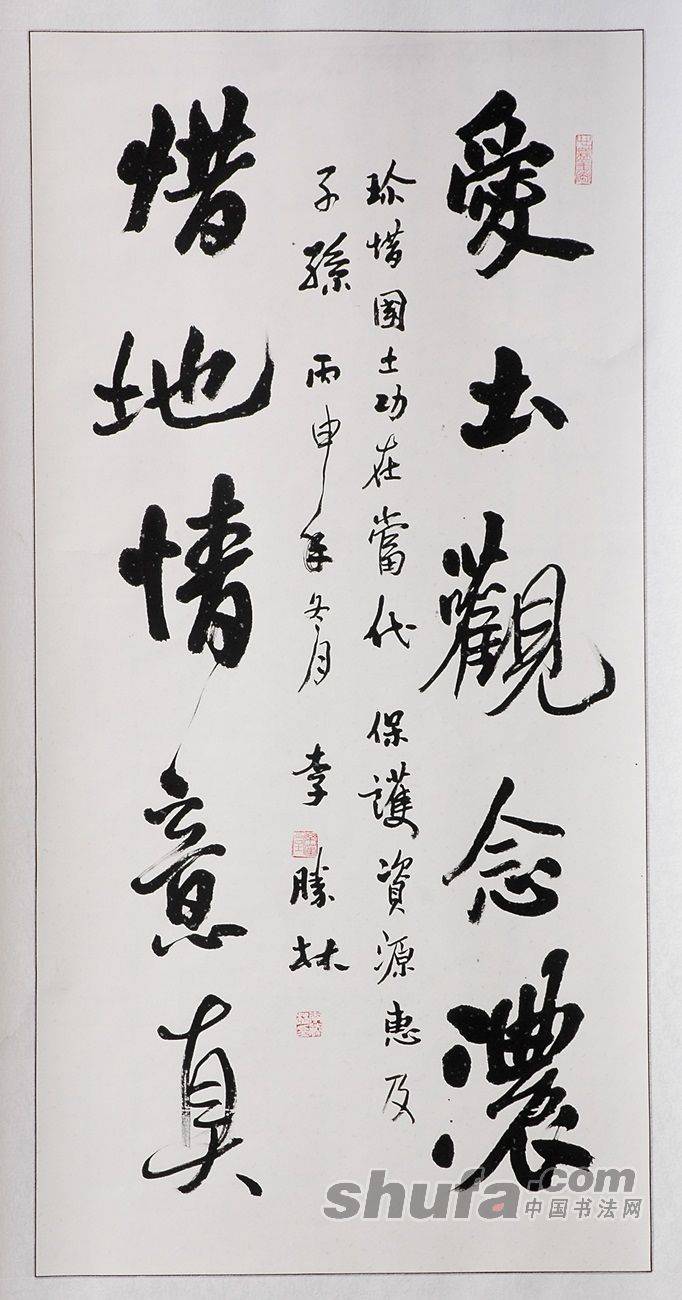 愛土觀念濃
珍惜國土功在當代 保護資源惠及
子孫 丙申年冬月 李勝林
惜地情意真
shufa.com
中国书法网